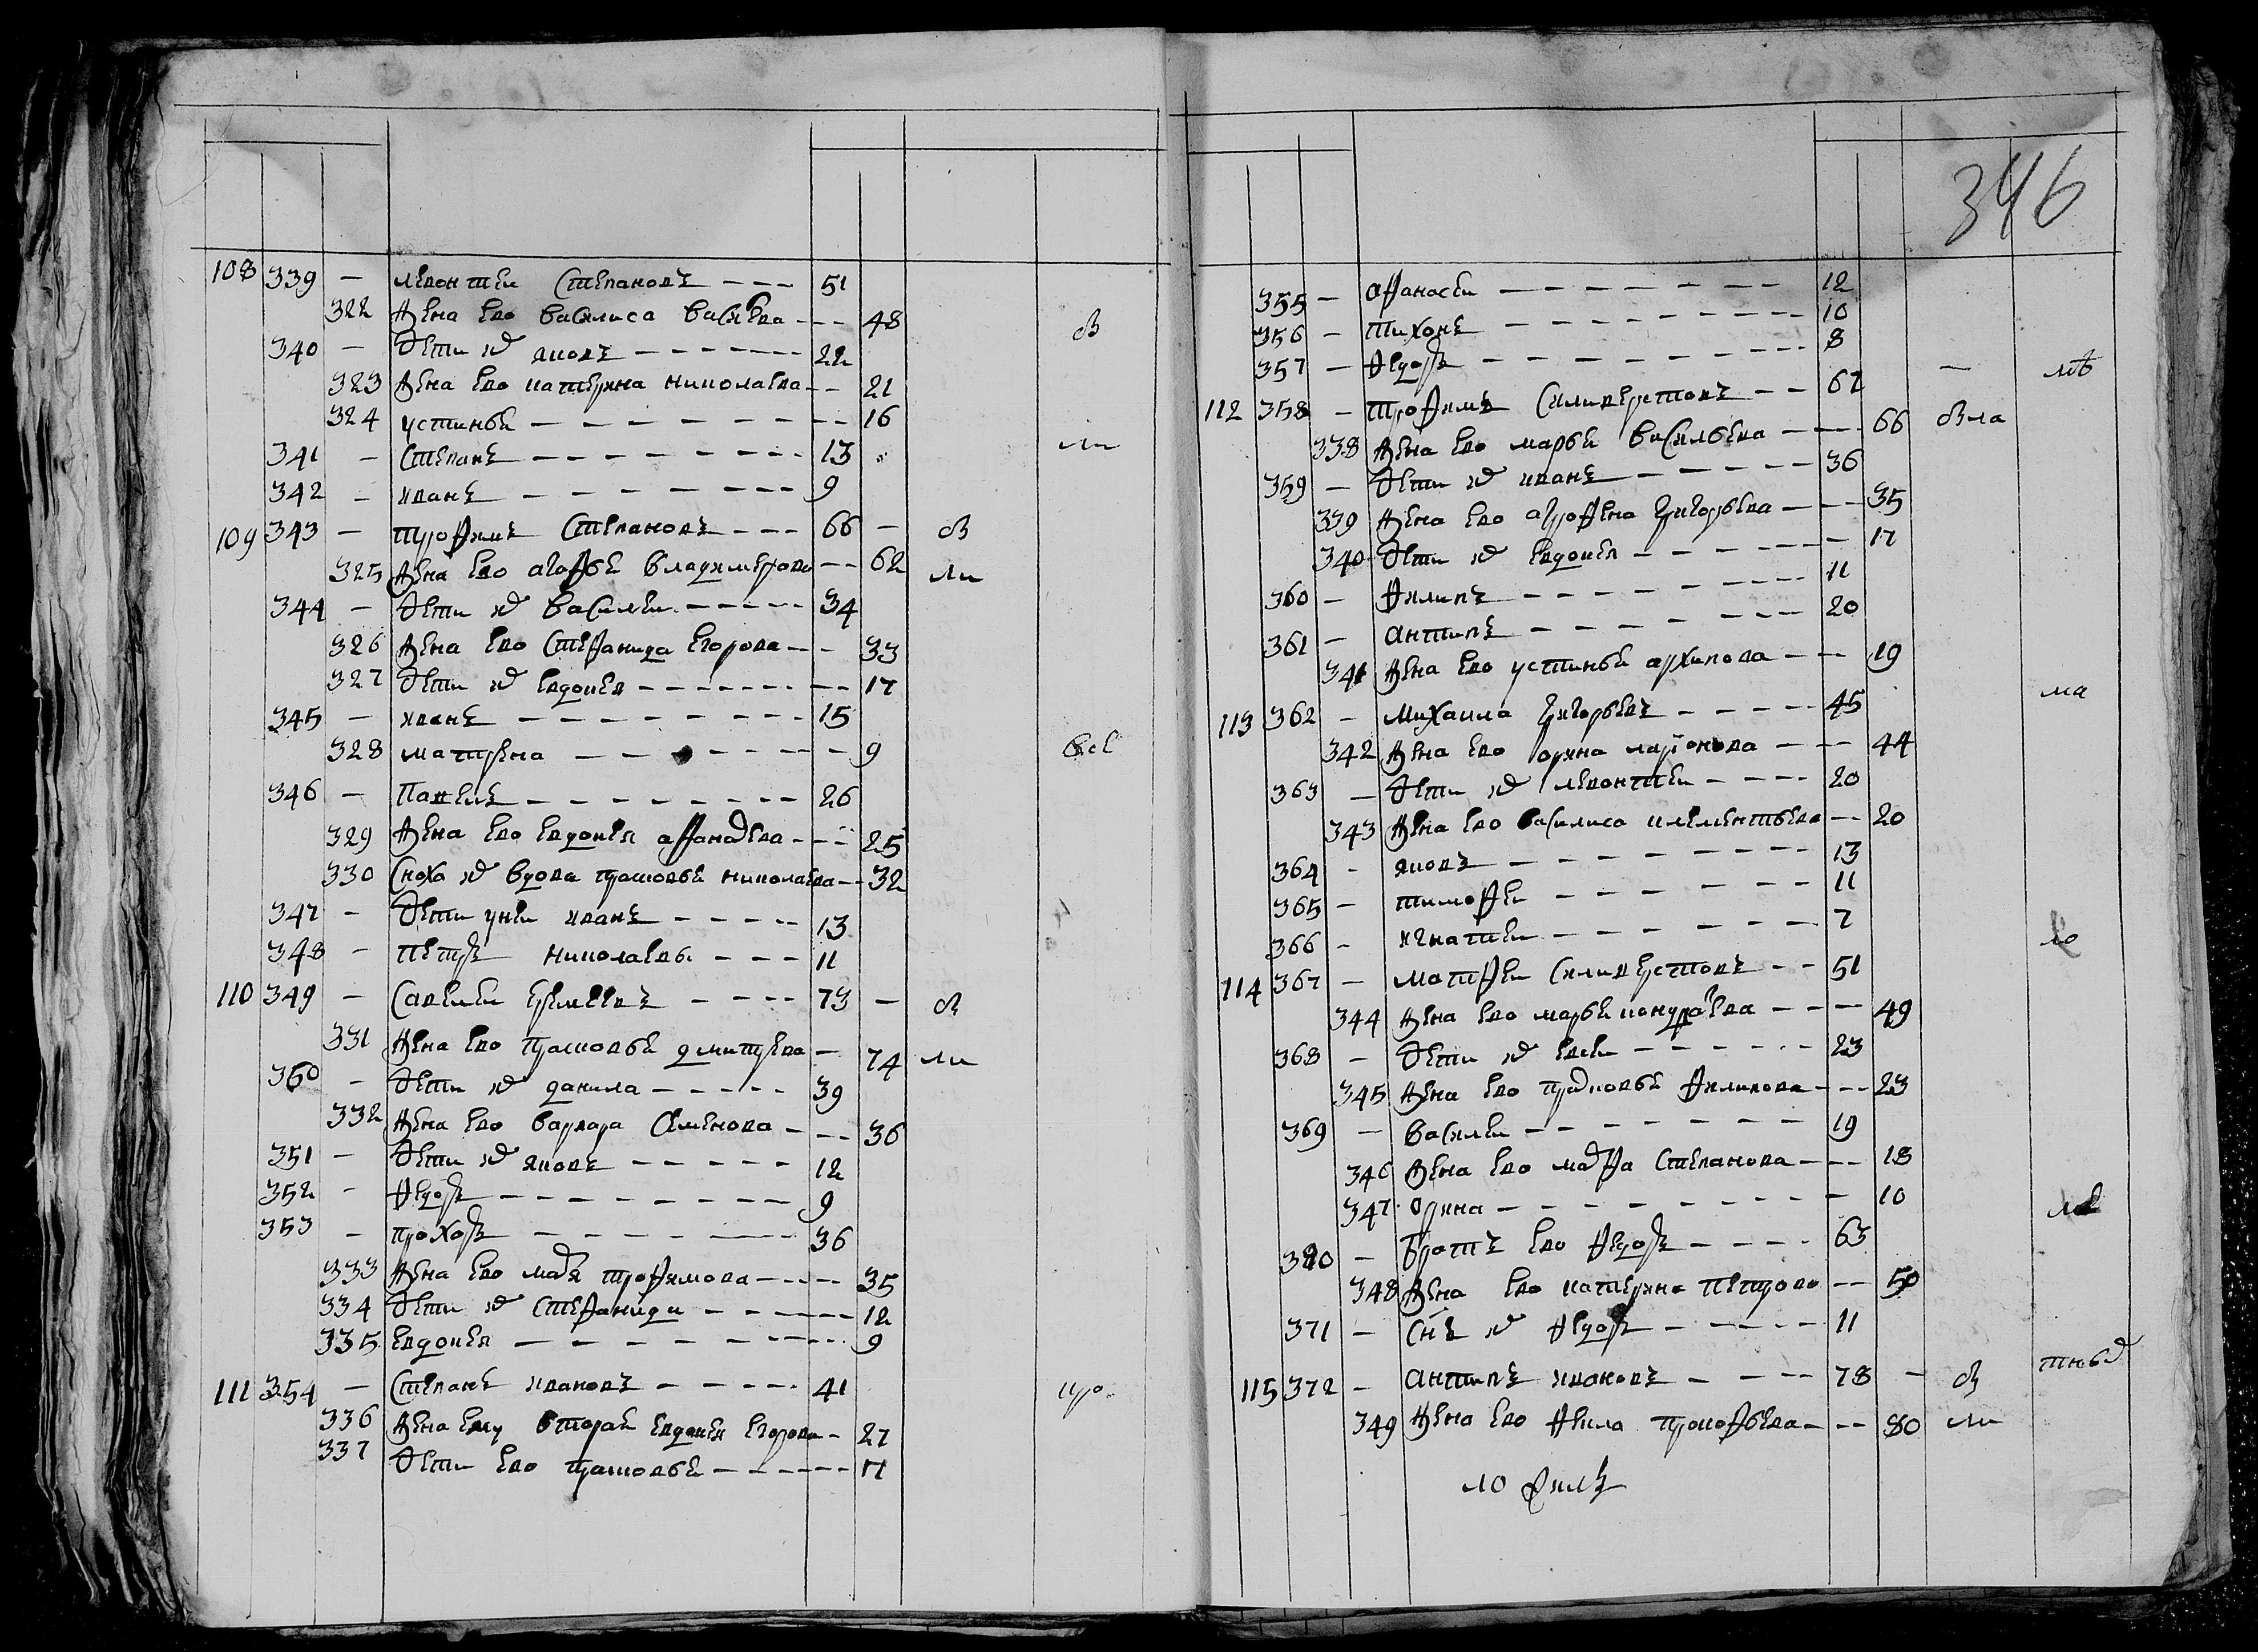 346
108 339 — леонтеи Степановъ — — — 51
322 жена ево василиса васильева — — — 48
340 — дети их яковъ — — — 22
323 жена ево катерина николаева — — 21
324 устинья — — — 16
341 — Степанъ — — — 13
342 — иванъ — — — 9
109 343 — трофимъ Степановъ — — — 66 —
325 жена ево агафья владимерова — — 62
344 — дети их василеи — — — 34
326 жена ево Стефанида Егорова — — 33
327 дети их евдокея — — — 17
345 — иванъ — — — 15
328 матрена — — — 9
346 — Павелъ — — — 26
329 жена ево евдокея афанасева — — — 25
330 Сноха их вдова прасковья николаева — — 32
347 — дети у неи иванъ — — — 13
348 — петръ николаевы — — — 11
110 349 — Савелеи Еремеевъ — — — 73 —
331 жена ево прасковья дмитрева — 74
360 — дети их данила — — — 39
332 жена ево варвара Семенова — — — 36
351 — дети их яковъ — — — 12
352 — федоръ — — — 9
353 — прохоръ — — — 36
333 жена ево марья трофимова — — — 35
334 дети их Стефанида — — — 12
335 евдокея — — — 9
111 354 — Степанъ ивановъ — — — 41
336 жена ему вторая евдокея Егорова — 27
337 дети ево прасковья — — — 17
355 — афанасеи — — — 12
356 — тихонъ — — — 10
357 — федоръ — — — 8
112 358 — трофимъ Силиверстовъ — — 67
338 жена ево марья васильева — — — 66
359 — дети их иванъ — — — 36
339 жена ево агрофена григорьева — — — 35
340 дети их евдокея — — — 17
360 — филипъ — — — 11
361 — антипъ — — — 20
341 жена ево устинья архипова — — 19
113 362 — михаила григорьевъ — — — 45
342 жена ево орина ларионова — — 44
363 — дети их леонтеи — — — 20
343 жена ево василиса клементьева — 20
364 — яковъ — — — 13
365 — тимофеи — — — 11
366 — игнатеи — — — 7
114 367 — матфеи Силиверстовъ — — 51
344 жена ево марья кондратева — — — 49
368 — дети их евсеи — — — 23
345 жена ево прасковья филипова — — — 23
369 — василеи — — — 19
346 жена ево марфа Степанова — — — 18
347 орина — — — 10
370 — братъ ево федоръ — — — 63
348 жена ево катерина петрова — — 50
371 — Снъ их федоръ — — — 11
115 372 — антипъ ивановъ — — — 78 —
349 жена ево фекла прокофьева — — — 80